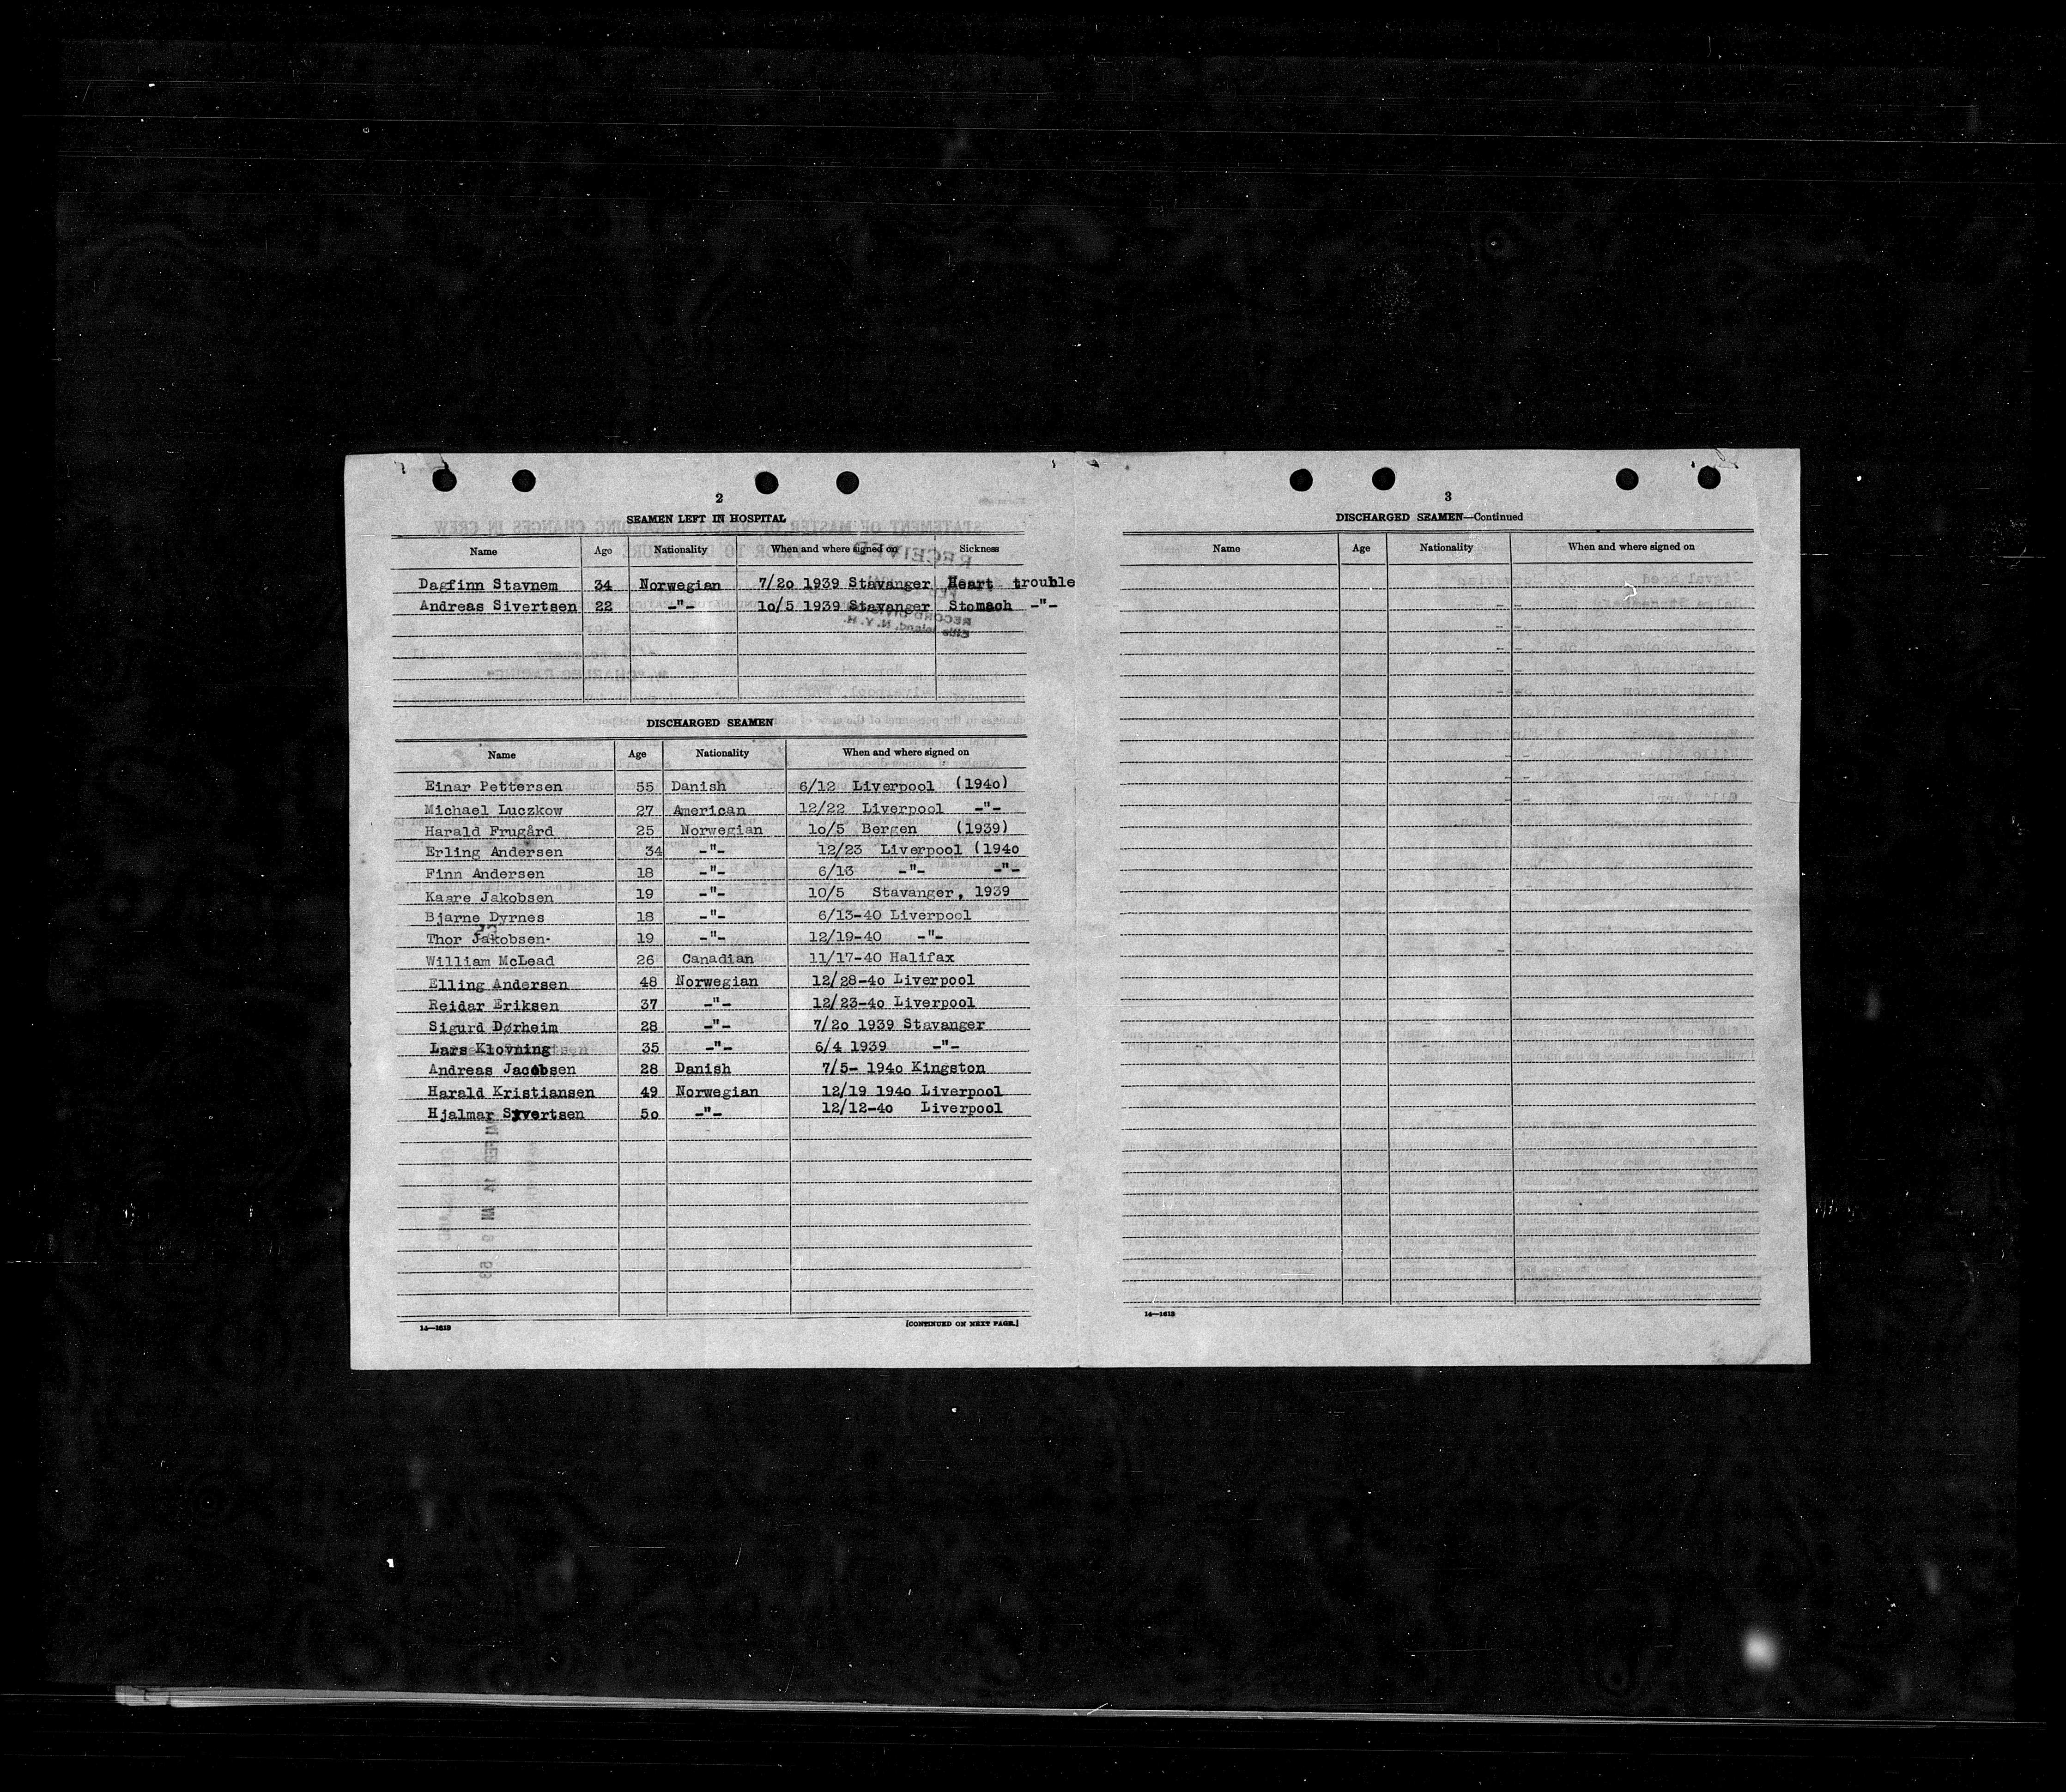 2
SEAMEN LEFT IN HOSPITAL
Name Age Nationality When and where signed on Sickness
Dagfinn Stavnem 34 Norwegian 7/2o 1939 Stavanger Heart trouble
Andreas Sivertsen 22 -"- 1o/5 1939 Stavanger Stomach -"-
DISCHARGED SEAMEN
Name Age Nationality When and where signed on
Einar Pettersen 55 Danish 6/12 Liverpool (194o)
Michael Luczkow 27 American 12/22 Liverpool -"-
Harald Frugård 25 Norwegian 1o/5 Bergen (1939)
Erling Andersen 34 -"- 12/23 Liverpool (194o
Finn Andersen 18 -"- 6/13 -"- -"-
Kaare Jakobsen 19 -"- 10/5 Stavanger, 1939
Bjarne Dyrnes 18 -"- 6/13-40 Liverpool
Thor Jakobsen- 19 -"- 12/19-40 -"-
William McLead 26 Canadian 11/17-40 Halifax
Elling Andersen 48 Norwegian 12/28-4o Liverpool
Reidar Eriksen 37 -"- 12/23-4o Liverpool
Sigurd Dørheim 28 -"- 7/2o 1939 Stavanger
Lars Klovning 35 -"- 6/4 1939 -"-
Andreas Jacobsen 28 Danish 7/5- 194o Kingston
Harald Kristiansen 49 Norwegian 12/19 194o Liverpool
Hjalmar Syvertsen 5o -"- 12/12-4o Liverpool
14—1613 [CONTINUED ON NEXT PAGE.]
3
DISCHARGED SEAMEN—Continued
Name Age Nationality When and where signed on
14—1613